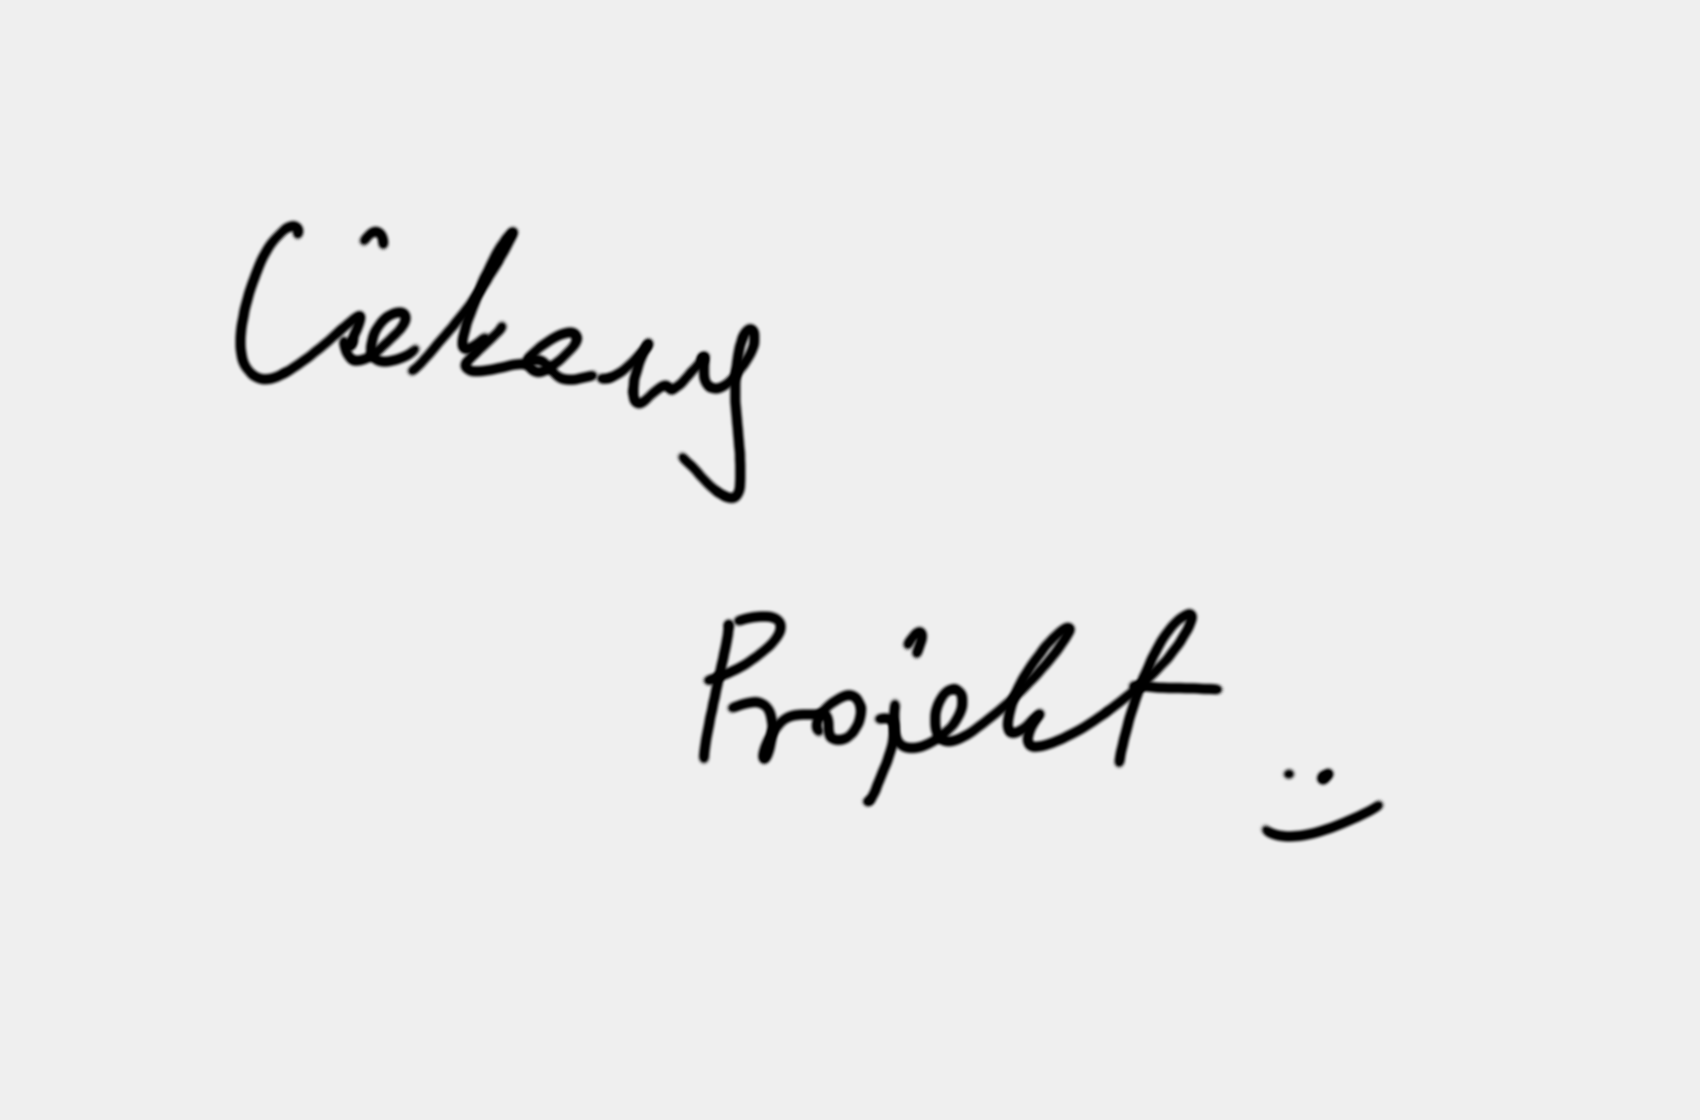 Ciekawy
Projekt :)